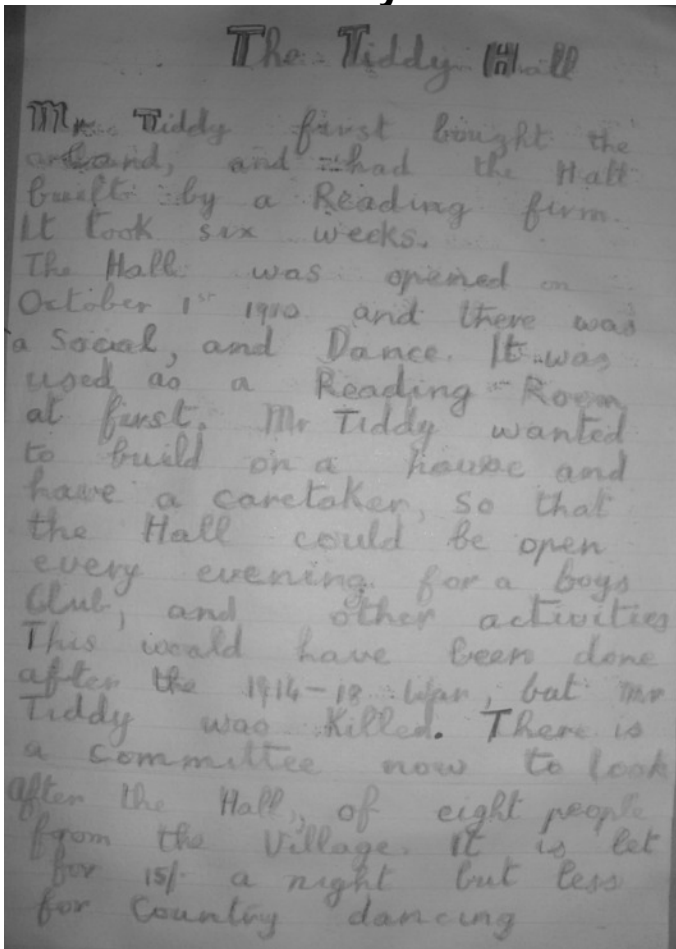 The Tiddy Hall
Mr. Tiddy first bought the
and, and had the Hall
built by a Reading firm.
It took six weeks.
The Hall was opened on
October 1st 1910 and there was
a Social, and Dance. It was
used as a Reading Room
at first. Mr Tiddy wanted
to build on a house and
have a caretaker, so that
the Hall could be open
every evening for a boys
Club, and other activities
This would have been done
after the 1914-18 War, but Mr
Tiddy was Killed. There is
a committee now to look
after the Hall, of eight people
from the Village. It is let
for 15/- a night but less
for Country dancing